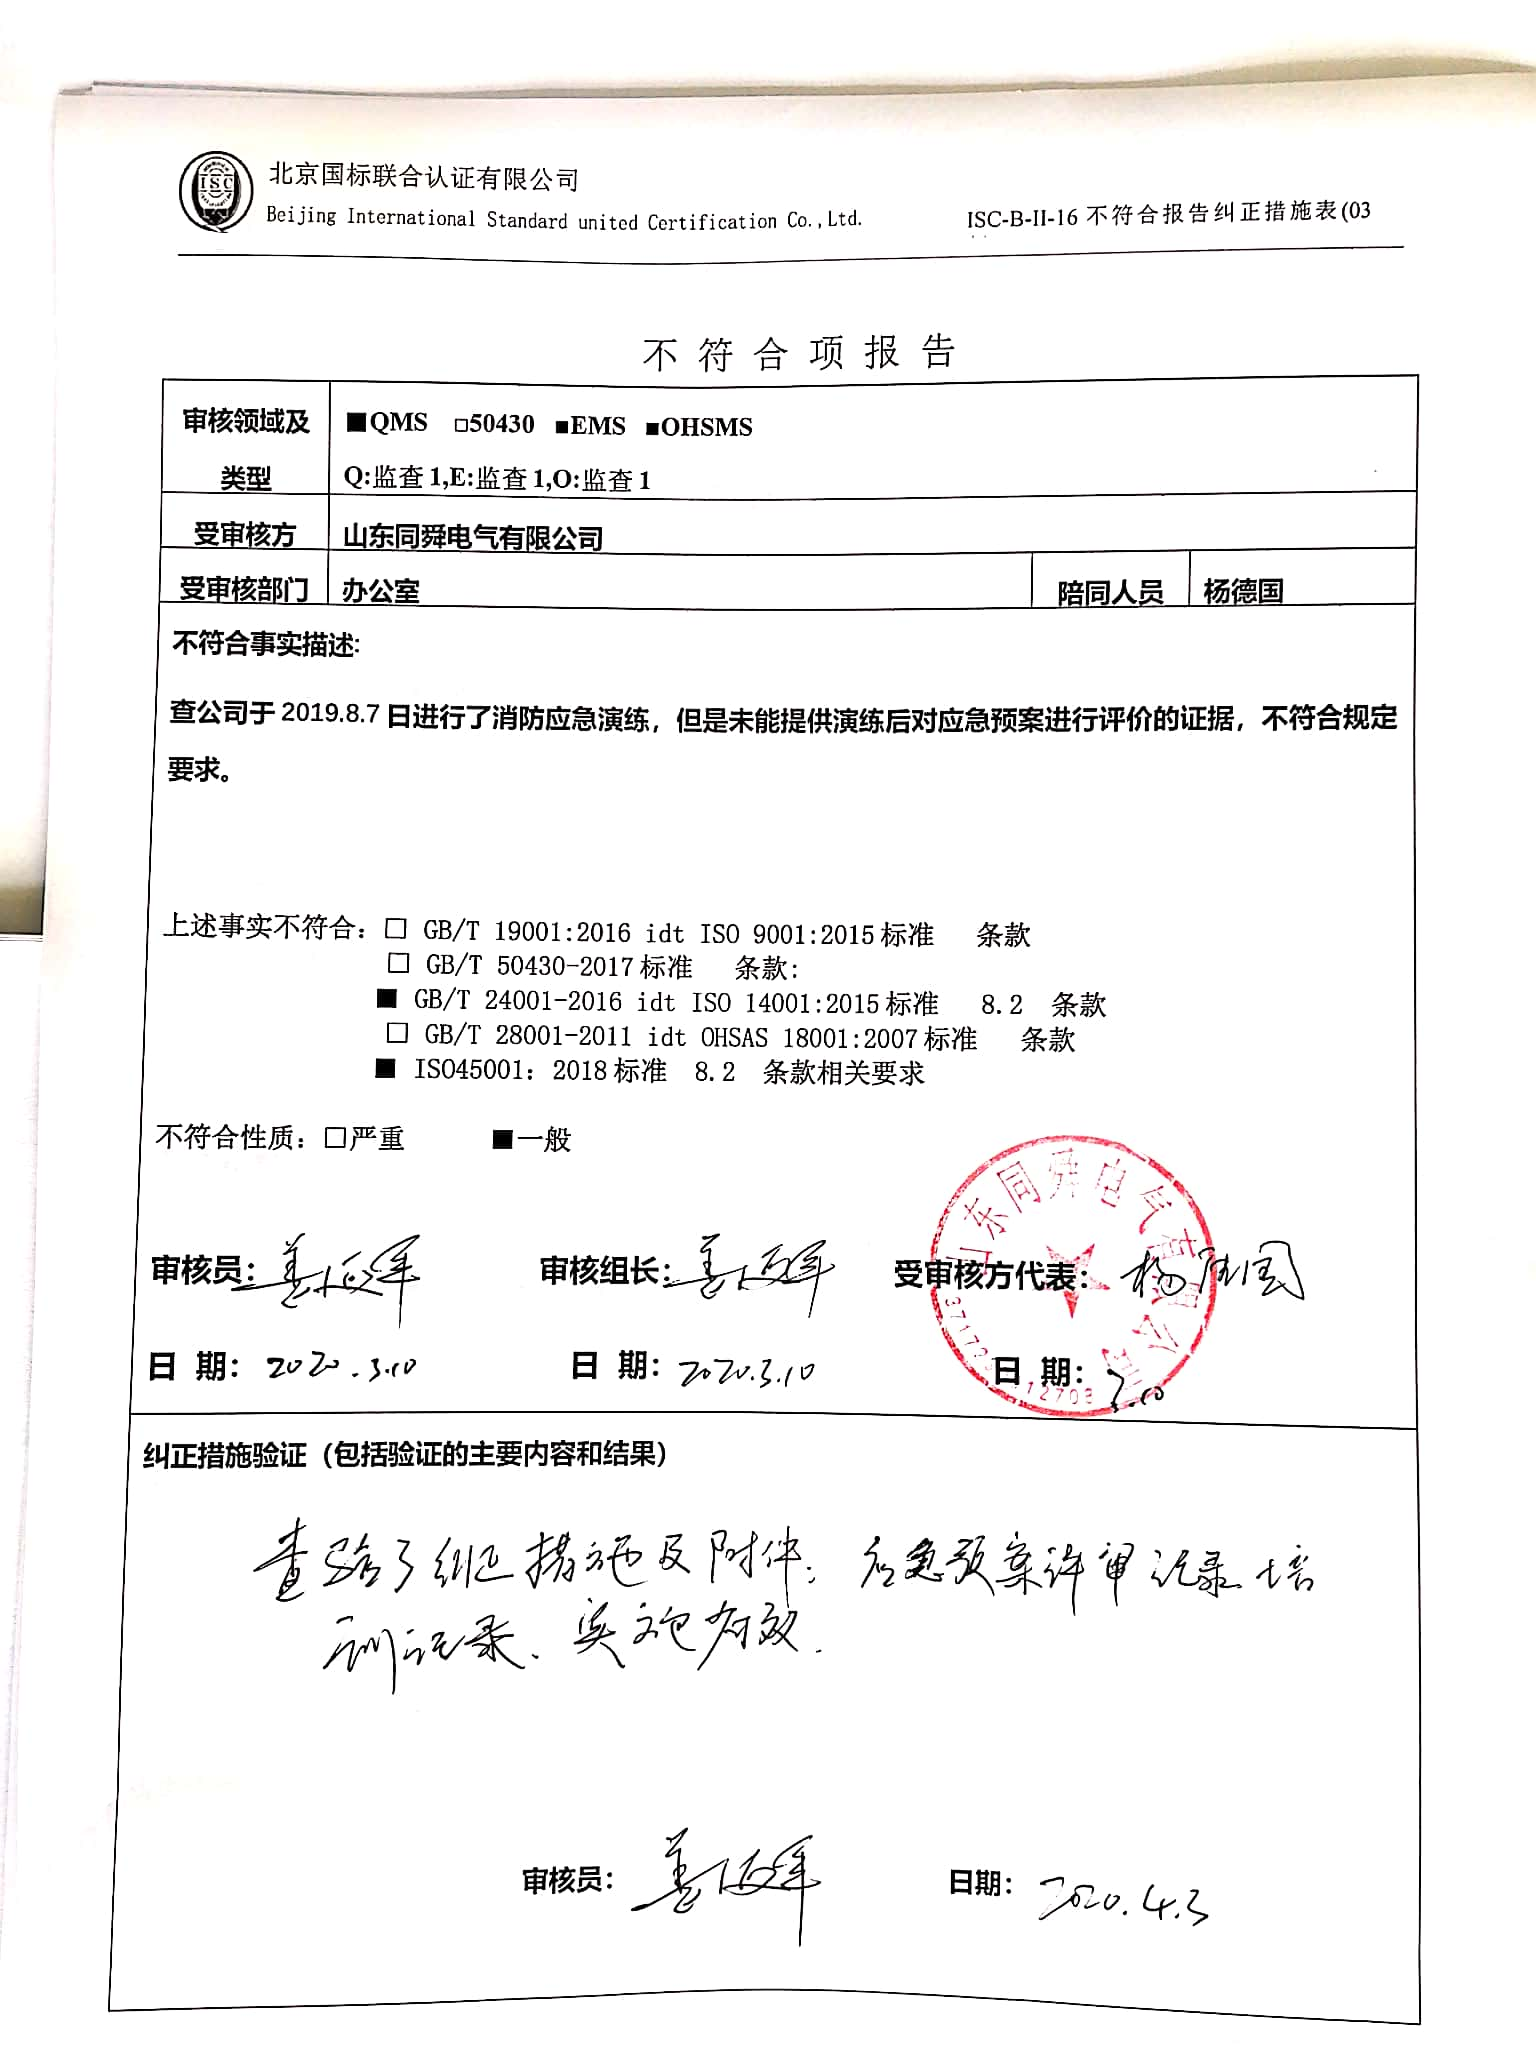 ISC
北京国标联合认证有限公司
Beijing International Standard united Certification Co.,Ltd.
ISC-B-II-16 不符合报告纠正措施表(03
不符合项报告
审核领域及类型
■QMS □50430 ■EMS ■OHSMS
Q:监查1,E:监查1,O:监查1
受审核方 山东同舜电气有限公司
受审核部门 办公室 陪同人员 杨德国
不符合事实描述:
查公司于 2019.8.7 日进行了消防应急演练，但是未能提供演练后对应急预案进行评价的证据，不符合规定
要求。
上述事实不符合：□ GB/T 19001:2016 idt ISO 9001:2015标准 条款
□ GB/T 50430-2017标准 条款:
■ GB/T 24001-2016 idt ISO 14001:2015标准 8.2 条款
□ GB/T 28001-2011 idt OHSAS 18001:2007标准 条款
■ ISO45001：2018标准 8.2 条款相关要求
不符合性质：□严重 ■一般
山东同舜电气有限公司
审核员： 审核组长： 受审核方代表：杨德国
日 期：2020.3.10 日 期：2020.3.10 日 期：3.10
纠正措施验证（包括验证的主要内容和结果）
查验了纠正措施及附件：应急预案评审记录培
训记录、实施有效.
审核员： 日期：2020.4.3